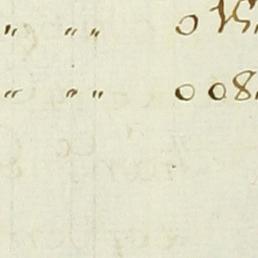 " " " 0 15
" " " 0 08